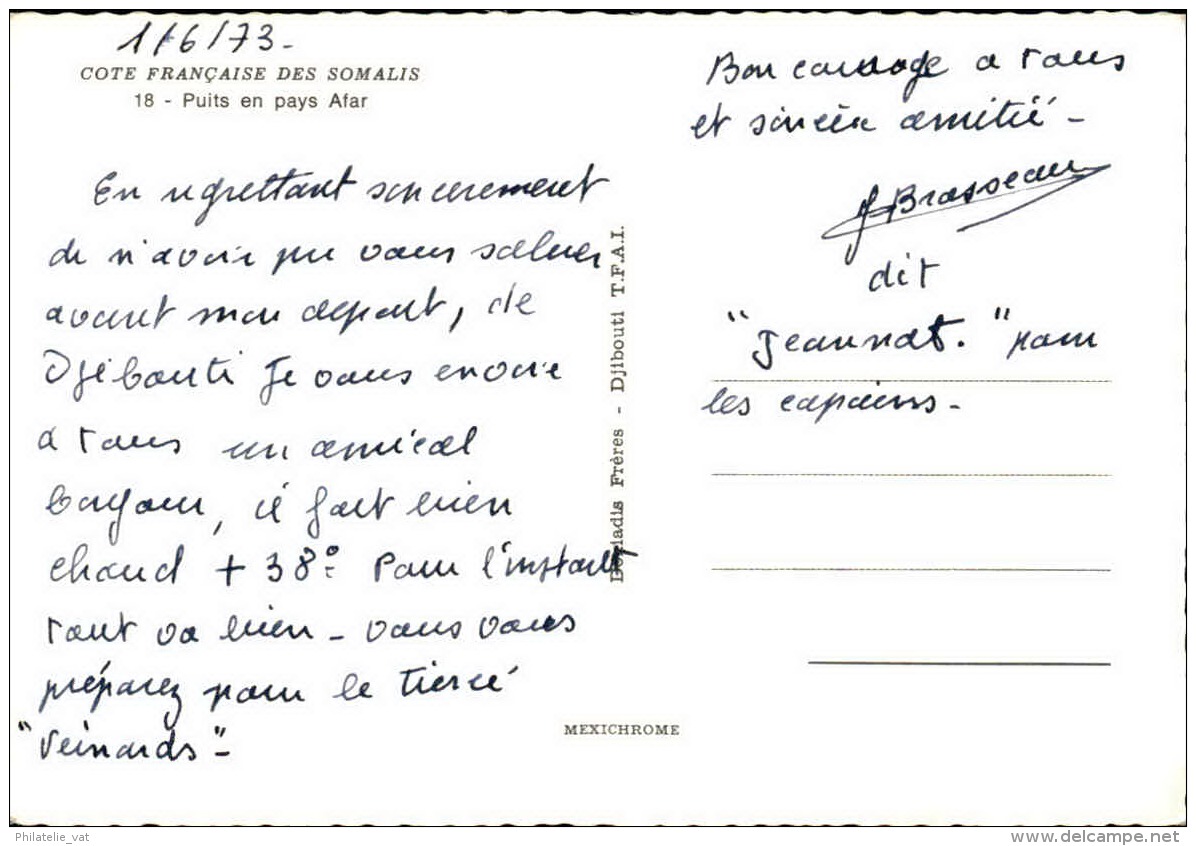 1/6/73-
COTE FRANÇAISE DES SOMALIS
18 - Puits en pays Afar
En regrettant sincerement
de n'avoir pu vous saluer
avant mon depart, de
Djibouti je vous envoie
a tous un amical
bonjour, il fait bien
chaud + 38°. Pour l'instant
tout va bien - vous vous
préparez pour le tiercé
"Veinards"-
Bon courage a tous
et sincère amitié -
J Brasseau
dit
"Jeannot." pour
les copains-
Frères - Djibouti T.F.A.I.
MEXICHROME
Philatelie_vat
http://www.delcampe.net